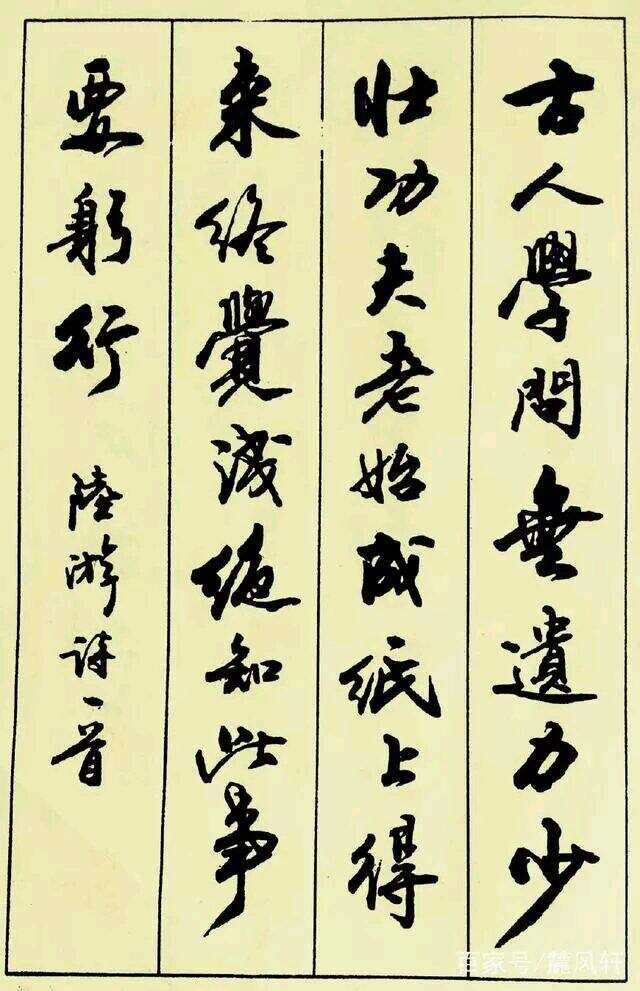 古人學問無遺力少
壯功夫老始成紙上得
來終覺淺絕知此事
要躬行 陸游詩一首
百家号/麓风轩